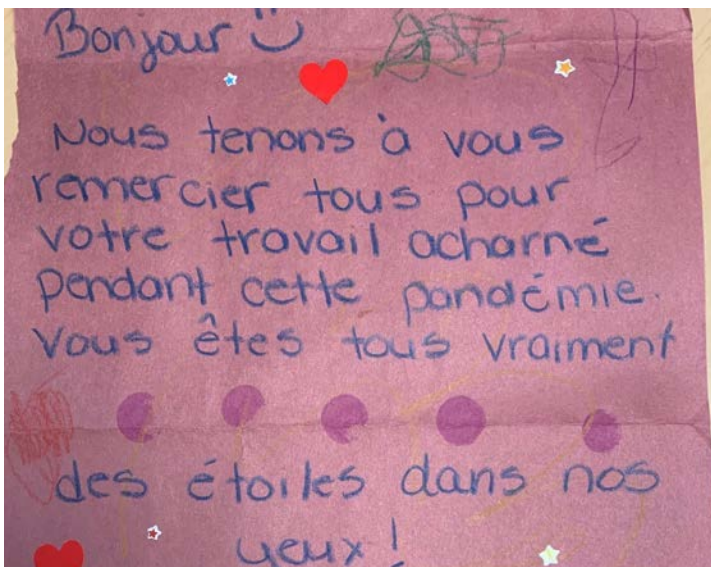 Bonjour
Nous tenons à vous
remercier tous pour
votre travail acharné
pendant cette pandémie.
Vous êtes tous vraiment
des étoiles dans nos
yeux!